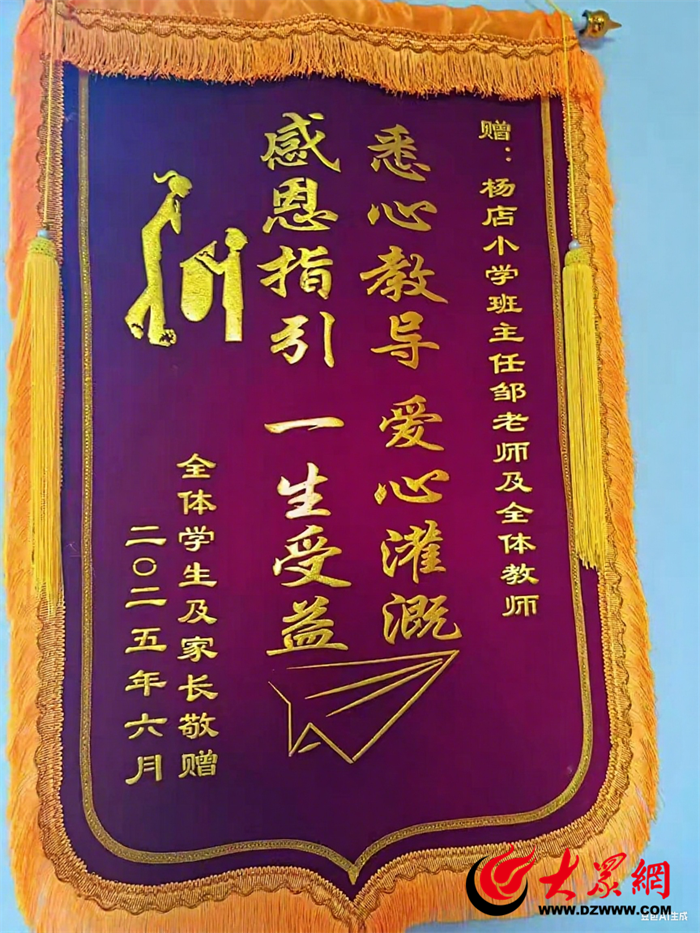 赠：杨店小学班主任邹老师及全体教师
悉心教导 爱心灌溉
感恩指引 一生受益
全体学生及家长敬赠
二〇二五年六月
大众網
WWW.DZWWW.COM
豆包AI生成